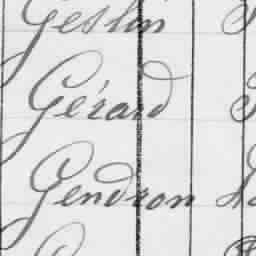 Geslin
Gérard
Gendron